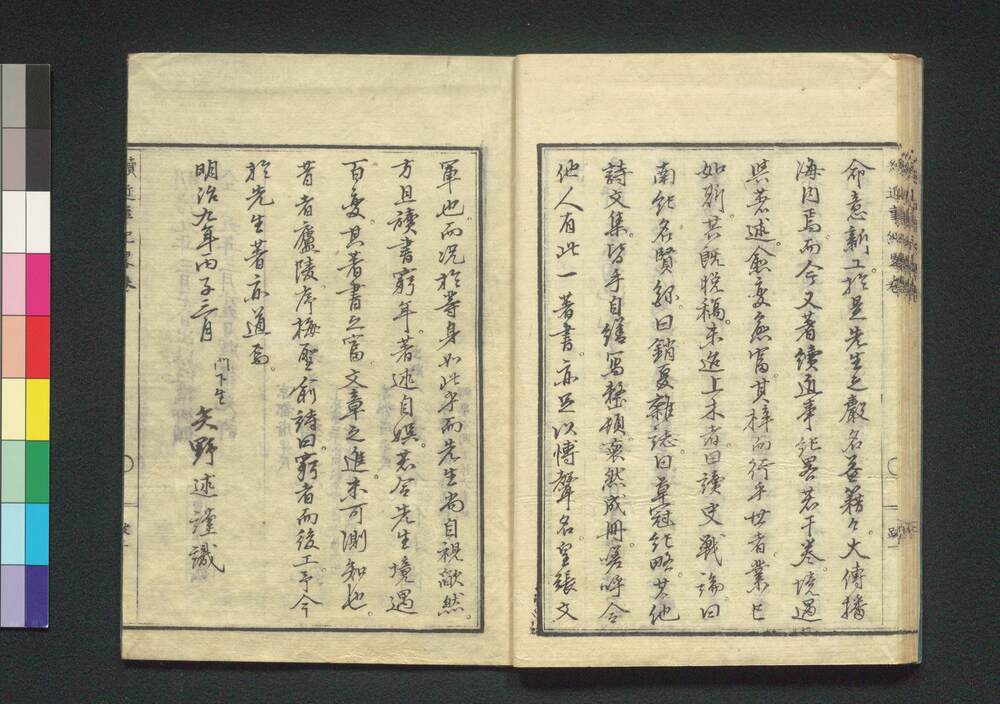 命意新工。於是先生之嚴名益籍々大傳播
海内焉。而今又著續近事紀畧若干卷。境遇
與著述。愈変愈富。其梓而行乎世者。業已
如斯。其既脱稿。未迨上木者。曰讀史戦論。曰
南紀名賢録。曰銷夏雜誌。曰草冠紀略。其他
詩文集。皆手自繕寫整頓。裒然成冊。嗟呼令
他人有此一著書。亦足以博聲名皇張文
軍也。而況於等身如此乎。而先生尚自視歛然。
方且讀書窮年。著述自娯。若令先生境遇
百変。其著書之富。文章之進。未可測知也。
昔者廬陵序梅聖俞詩曰。窮者而後工。予今
於先生著亦道焉。
明治九年丙子三月
門下生 矢野 述 謹識